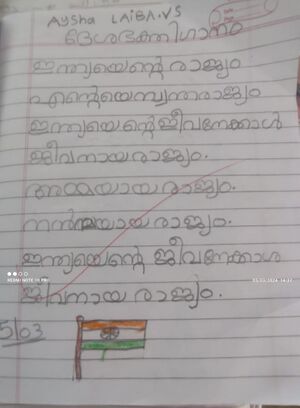 Aysha LAIBA.VS
ദേശഭക്തിഗാനം
ഇന്ത്യയെന്റെ രാജ്യം
എന്റെയെസ്വന്തരാജ്യം
ഇന്ത്യയെന്റെജീവനേക്കാൾ
ജീവനായ രാജ്യം.
അമ്മയായ രാജ്യം.
നന്മയായ രാജ്യം.
ഇന്ത്യയെന്റെ ജീവനേക്കാള
ജീവനായ രാജ്യം.
5/03
REDMI NOTE 10 PRO
05/03/2024 14:37